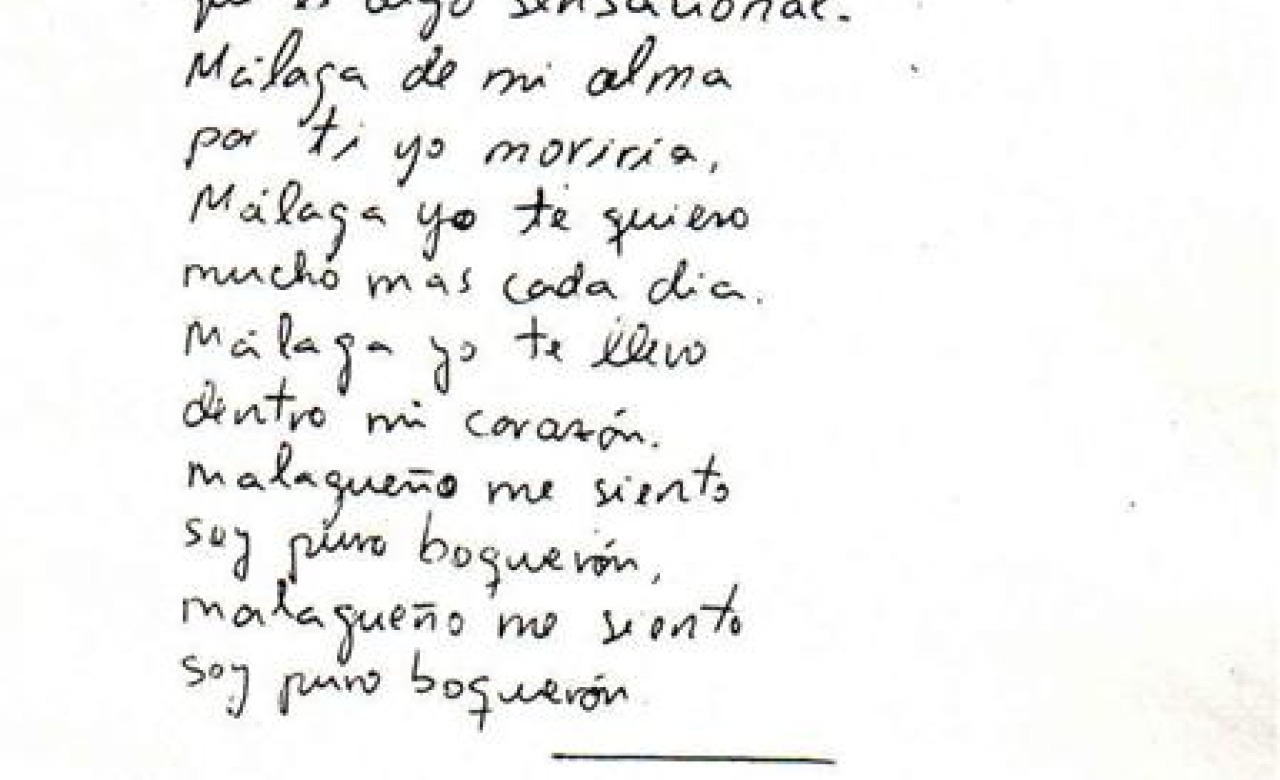 que es algo sensacional.
Málaga de mi alma
por ti yo moriria,
Málaga yo te quiero
mucho mas cada dia.
Málaga yo te llevo
dentro mi corazón.
malagueño me siento
soy puro boquerón,
malagueño me siento
soy puro boquerón.